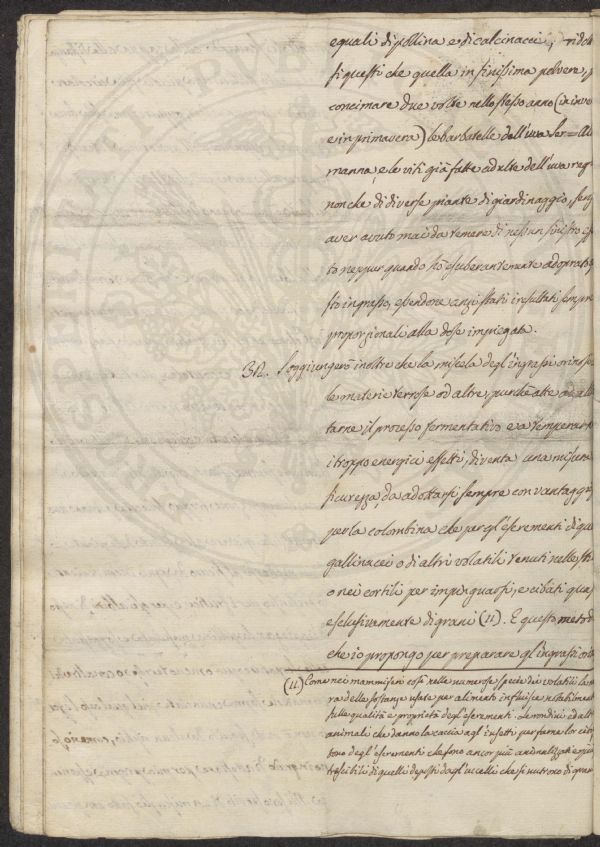 equali di pollina e di calcinacci; ridot
si questi che quella in finissima polvere,
concimare due volte nello stesso anno (in inve
e in primavera) le barbatelle dell'uva Ser=Ale
manna, e le viti già fatte adulte dell'uva reg
nonchè di diverse piante di giardinaggio, sen
aver avuto mai da temere di nessun sinistro eff
to neppur quando ho esuberantemente adoprato
sto ingrasso, essendone anzi stati i resultati sempre
proporzionali alla dose impiegata.
32. Soggiungerò inoltre che la miscela degl'ingrassi orinos
le materie terrose od altre, purchè atte ad
tarne il processo fermentativo e a temperarn
i troppo energici effetti, diventa una misura
sicurezza, da adottarsi sempre con vantaggi
per la colombina che per gl'escrementi di que
gallinacei o di altri volatili tenuti nelle sti
o nei cortili per impinguarsi, e cibati qua
esclusivamente di grani (11). E questo metod
che io propongo per preparare gl'ingrassi
(11) Come nei mammiferi così nelle numerose specie dei volatili la na
ra delle sostanze usate per alimenti influisce notabilment
sulle qualità e proprietà degl'escrementi. Le rondini ed alt
animali che danno la caccia agl'insetti per farne lor cib
tono degl'escrementi che sono ancor più animalizzati e più
trescibili di quelli deposti dagl'uccelli che si nutrono di gran